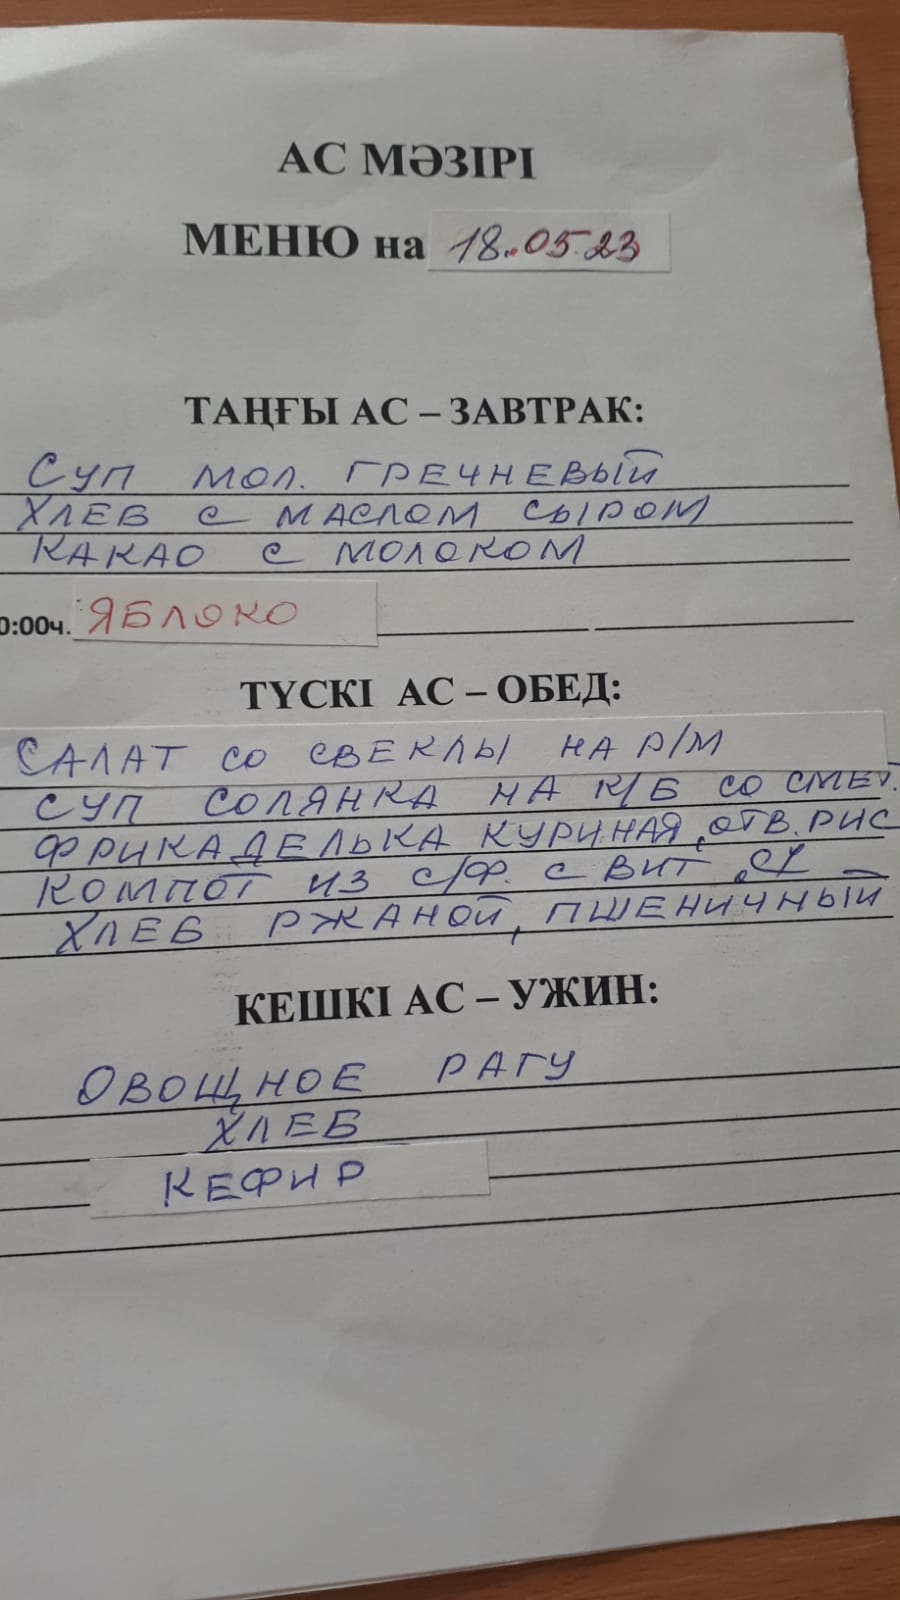 АС МӘЗІРІ
МЕНЮ на 18.05.23
ТАҢҒЫ АС – ЗАВТРАК:
СУП МОЛ. ГРЕЧНЕВЫЙ
ХЛЕБ С МАСЛОМ СЫРОМ
КАКАО С МОЛОКОМ
0:00ч. ЯБЛОКО
ТҮСКІ АС – ОБЕД:
САЛАТ СО СВЕКЛЫ НА Р/М
СУП СОЛЯНКА НА К/Б СО СМЕТ.
ФРИКАДЕЛЬКА КУРИНАЯ, ОТВ. РИС
КОМПОТ ИЗ С/Ф. С ВИТ „С"
ХЛЕБ РЖАНОЙ, ПШЕНИЧНЫЙ
КЕШКІ АС – УЖИН:
ОВОЩНОЕ РАГУ
ХЛЕБ
КЕФИР